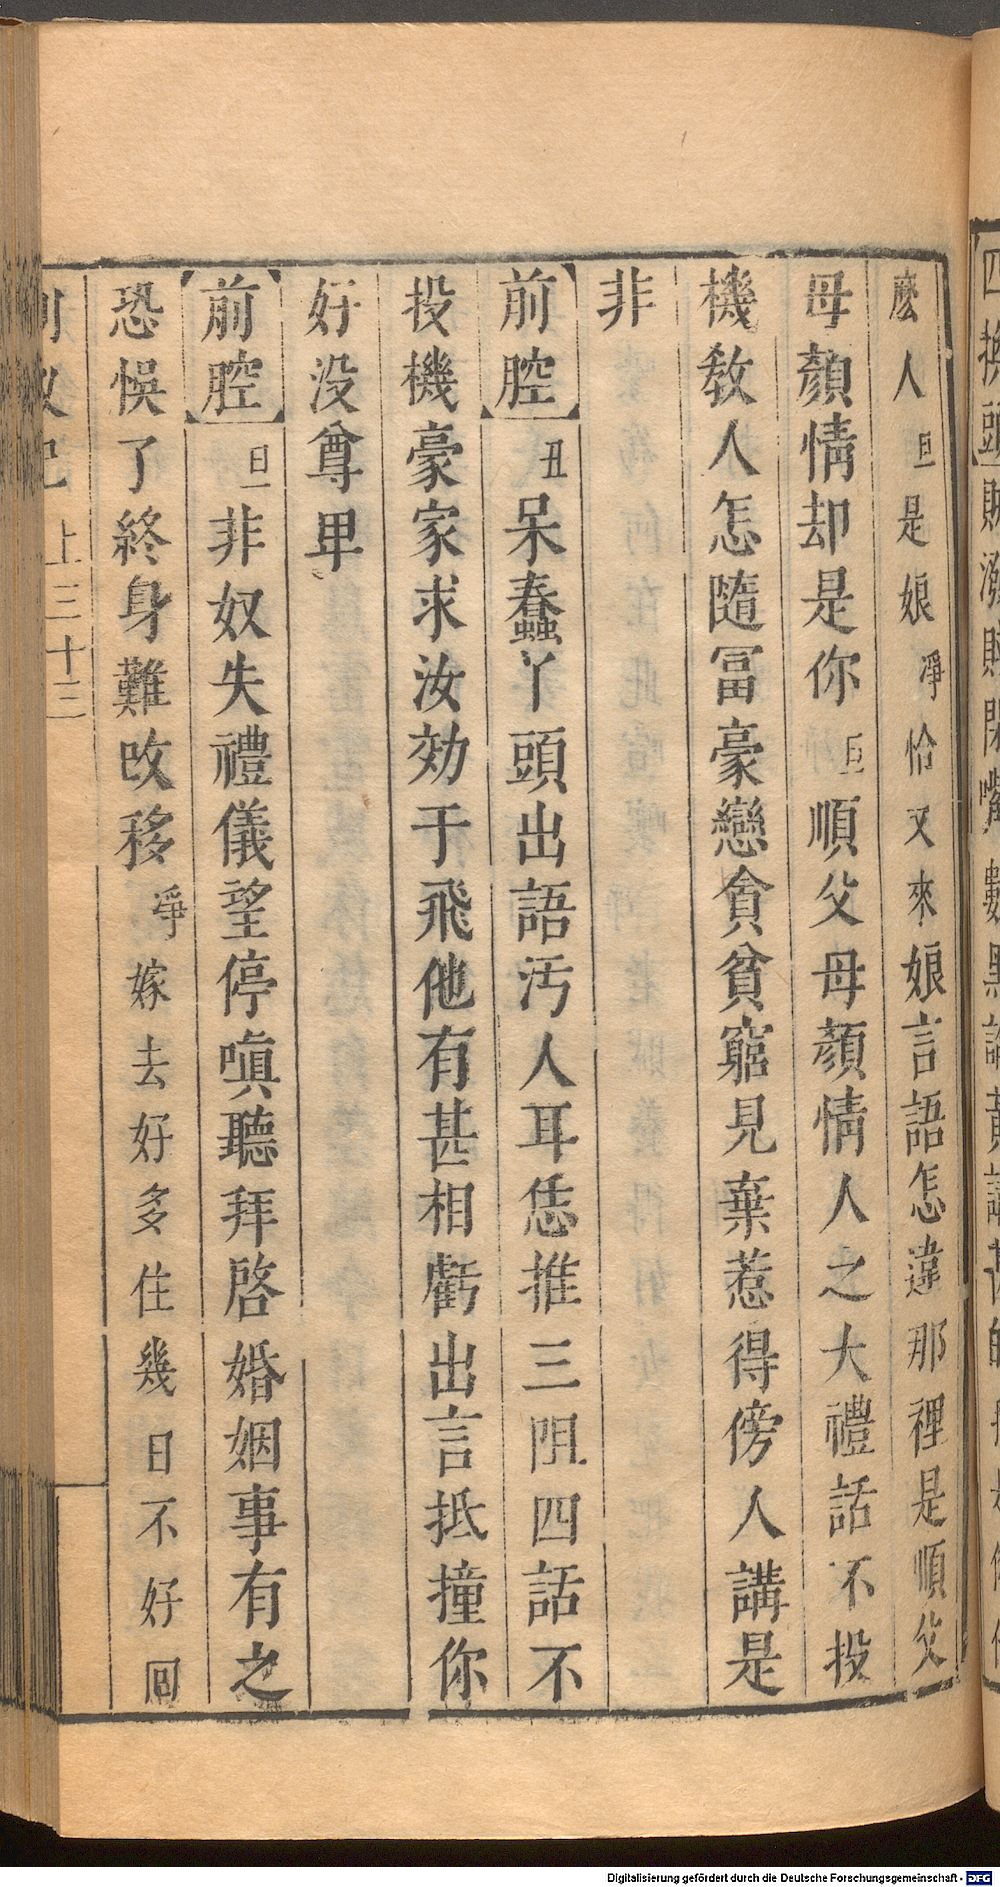 麽人旦是娘淨恰又來娘言語怎違那裡是順父
母顏情却是你旦順父母顏情人之大禮話不投
機教人怎隨冨豪戀貪貧窮見棄惹得傍人講是
非
前腔丑呆蠢丫頭出語汚人耳恁推三阻四話不
投機豪家求汝効于飛他有甚相虧出言抵撞你
好没尊卑
前腔旦非奴失禮儀望停嗔聽拜啓婚姻事有之
恐悞了終身難改移淨嫁去好多住幾日不好回
上三十三
Digitalisierung gefördert durch die Deutsche Forschungsgemeinschaft - DFG